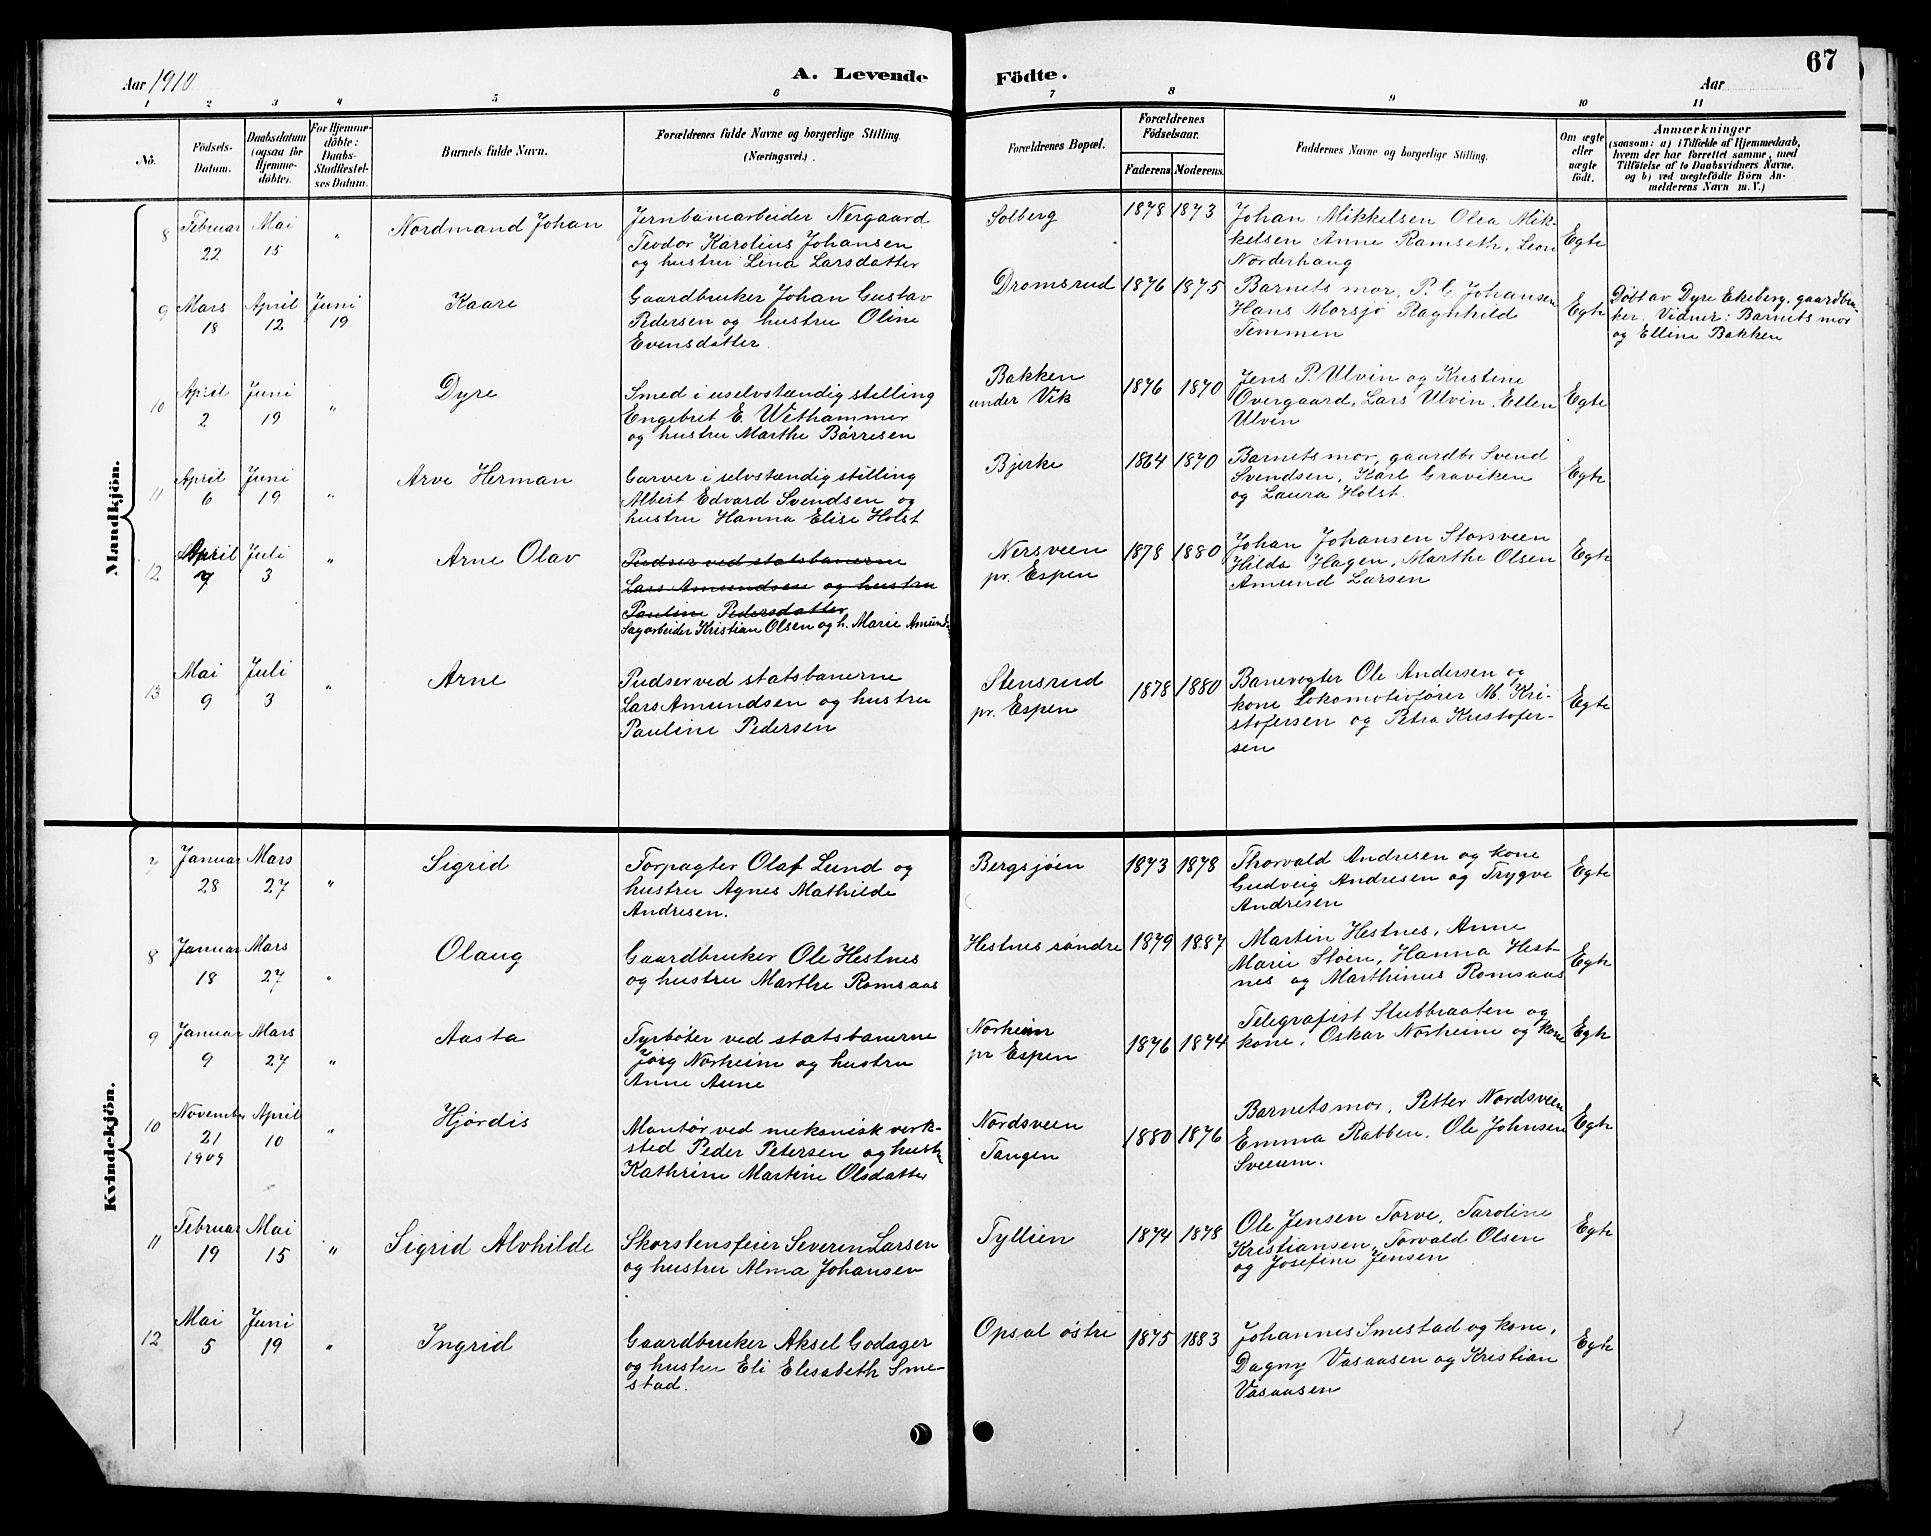 67
Aar 1910
A. Levende Födte.
Aar
1 2 3 4 5 6 7 8 9 10 11
No.
Födsels-Datum.
Daabsdatum (ogsaa for Hjemme-döbte).
For Hjemme-döbte: Daabs-Stadfæstel-ses Datum.
Barnets fulde Navn.
Forældrenes fulde Navne og borgerlige Stilling. (Næringsvei).
Forældrenes Bopæl.
Forældrenes Födselsaar.
Faderens Moderens.
Faddernes Navne og borgerlige Stilling.
Om ægte eller uægte födt.
Anmærkninger
(saasom: a) i Tilfælde af Hjemmedaab,
hvem der har forrettet samme, med
Tilföielse af to Daabsvidners Navne,
og b) ved uægtefödte Börn An-
melderens Navn m. V.)
Mandkjön.
8 Februar 22 Mai 15 " Nordmand Johan
Jernbanearbeider Nergaard
Teodor Karolius Johansen
og hustru Lina Larsdatter
Solberg 1878 1873
Johan Mikkelsen Olea Mik-
kelsen Anne Ramseth, Leon
Norderhaug
Egte
9 Mars 18 April 12 Juni 19 Kaare
Gaardbruker Johan Gustav
Pedersen og hustru Oline
Evensdatter
Dromsrud 1876 1875
Barnets mor, P. C. Johansen
Hans Morsjø Ragnhild
Temmen
Egte
Døbt av Dyre Ekeberg, gaardbru-
ker. Vidner: Barnets mor
og Elline Bakken
10 April 2 Juni 19 " Dyre
Smed i uselvstændig stilling
Engebret E. Wethammer
og hustru Marthe Børresen
Bakken
under Vik
1876 1870
Jens P. Ulvin og Kristine
Overgaard, Lars Ulvin, Ellen
Ulvin
Egte
11 April 6 Juni 19 " Arve Herman
Garver i selvstændig stilling
Albert Edvard Svendsen og
hustru Hanna Elise Holst
Bjerke 1864 1870
Barnets mor, gaardbr Svend
Svendsen, Karl Graviken
og Laura Holst.
Egte
12 April 7 Juli 3 " Arne Olav
Pudser ved statsbanerne
Lars Amundsen og hustru
Pauline Pedersdatter
Sagarbeider Kristian Olsen og h. Marie Amunds
Nersveen
pr. Espen
1878 1880
Johan Johansen Storsveen
Hilda Hagen, Marthe Olsen
Amund Larsen
Egte
13 Mai 9 Juli 3 " Arne
Pudser ved statsbanerne
Lars Amundsen og hustru
Pauline Pedersen
Stensrud
pr. Espen
1878 1880
Banevogter Ole Andersen og
kone Lokomotivfører M. Kri-
stofersen og Petra Kristofer-
sen
Egte
Kvindekjön.
7 Januar 28 Mars 27 " Sigrid
Forpagter Olaf Lund og
hustru Agnes Mathilde
Andresen.
Bergsjøen 1873 1878
Thorvald Andresen og kone
Gudveig Andresen og Trygve
Andresen
Egte
8 Januar 18 Mars 27 " Olaug
Gaardbruker Ole Hestnes
og hustru Marthe Romsaas
Hestnes søndre 1879 1887
Martin Hestnes, Anne
Marie Støen, Hanna Hest-
nes og Marthinus Romsaas
Egte
9 Januar 9 Mars 27 " Aasta
Fyrbøter ved statsbanerne
Jørg Norheim og hustru
Anne Aune
Norheim
pr Espen
1876 1874
Telegrafist Stubbraaten og
kone, Oskar Norheim og kone
Egte
10 November 21 1909 April 10 " Hjørdis
Montør ved mekanisk verk-
sted Peder Petersen og hustr
Kathrine Martine Olsdatter
Nordsveen
Tangen
1880 1876
Barnets mor, Petter Nordsveen
Emma Rabben, Ole Johnsen
Sveum.
Egte
11 Februar 19 Mai 15 " Sigrid Alvhilde
Skorstensfeier Severen Larsen
og hustru Alma Johansen
Fyllien 1874 1878
Ole Jensen Torve, Taroline
Kristiansen, Torvald Olsen
og Josefine Jensen
Egte
12 Mai 5 Juni 19 " Ingrid
Gaardbruker Aksel Godager
og hustru Eli Elisabeth Sme-
stad.
Opsal østre 1875 1883
Johannes Smestad og kone,
Dagny Vasaasen og Kristian
Vasaasen
Egte